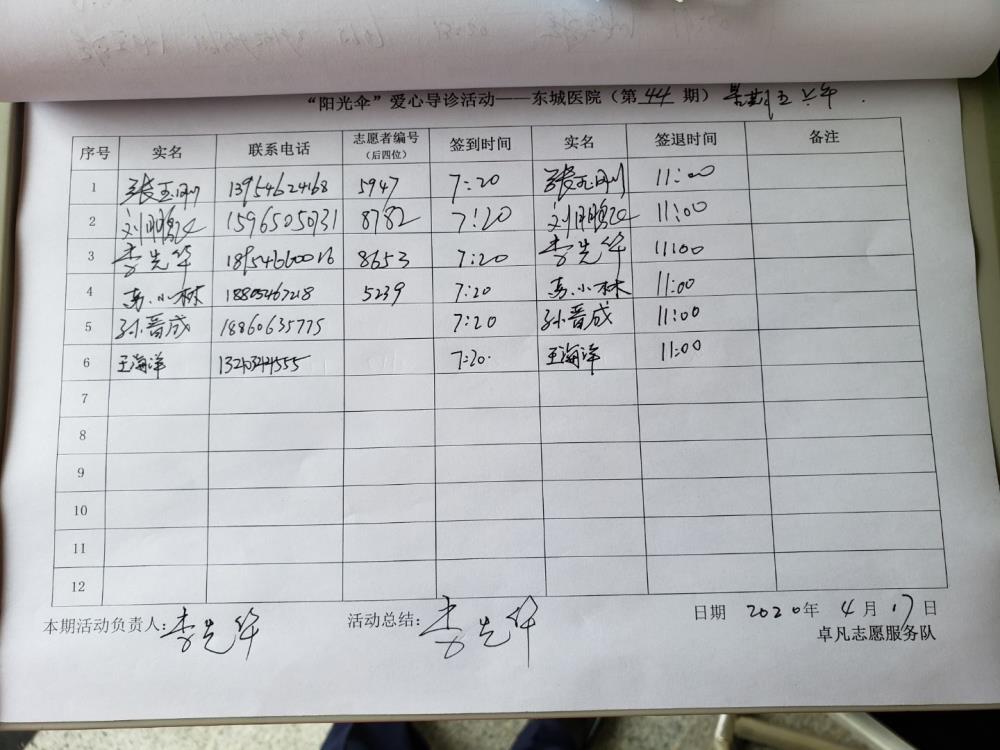 “阳光伞”爱心导诊活动——东城医院（第 44 期） 星期五 上午
序号 实名 联系电话 志愿者编号（后四位） 签到时间 实名 签退时间 备注
1 张玉刚 13954624168 5947 7:20 张玉刚 11:00
2 15965050731 8782 7:20 11:00
3 李先华 18954660016 8653 7:20 李先华 11:00
4 小林 18805467218 5239 7:20 小林 11:00
5 孙晋成 18860635775 7:20 孙晋成 11:00
6 王海洋 7:20 王海洋 11:00
7
8
9
10
11
12
本期活动负责人：李先华 活动总结：李先华 日期 2020年 4月 17日
卓凡志愿服务队